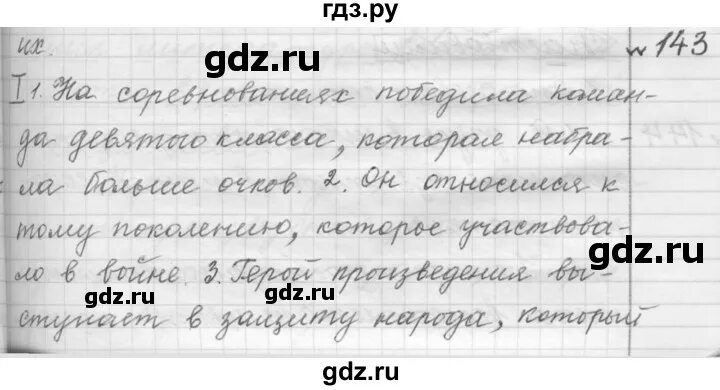 гдз.ру
их. № 143
I 1. На соревнованиях победила коман-
да девятого класса, которая набра-
ла больше очков. 2. Он относился к
тому поколению, которое участвова-
ло в войне. 3. Герой произведения вы-
ступает в защиту народа, который
gdz.ru
gdz.ru
gdz.ru
gdz.ru
gdz.ru
gdz.ru
gdz.ru